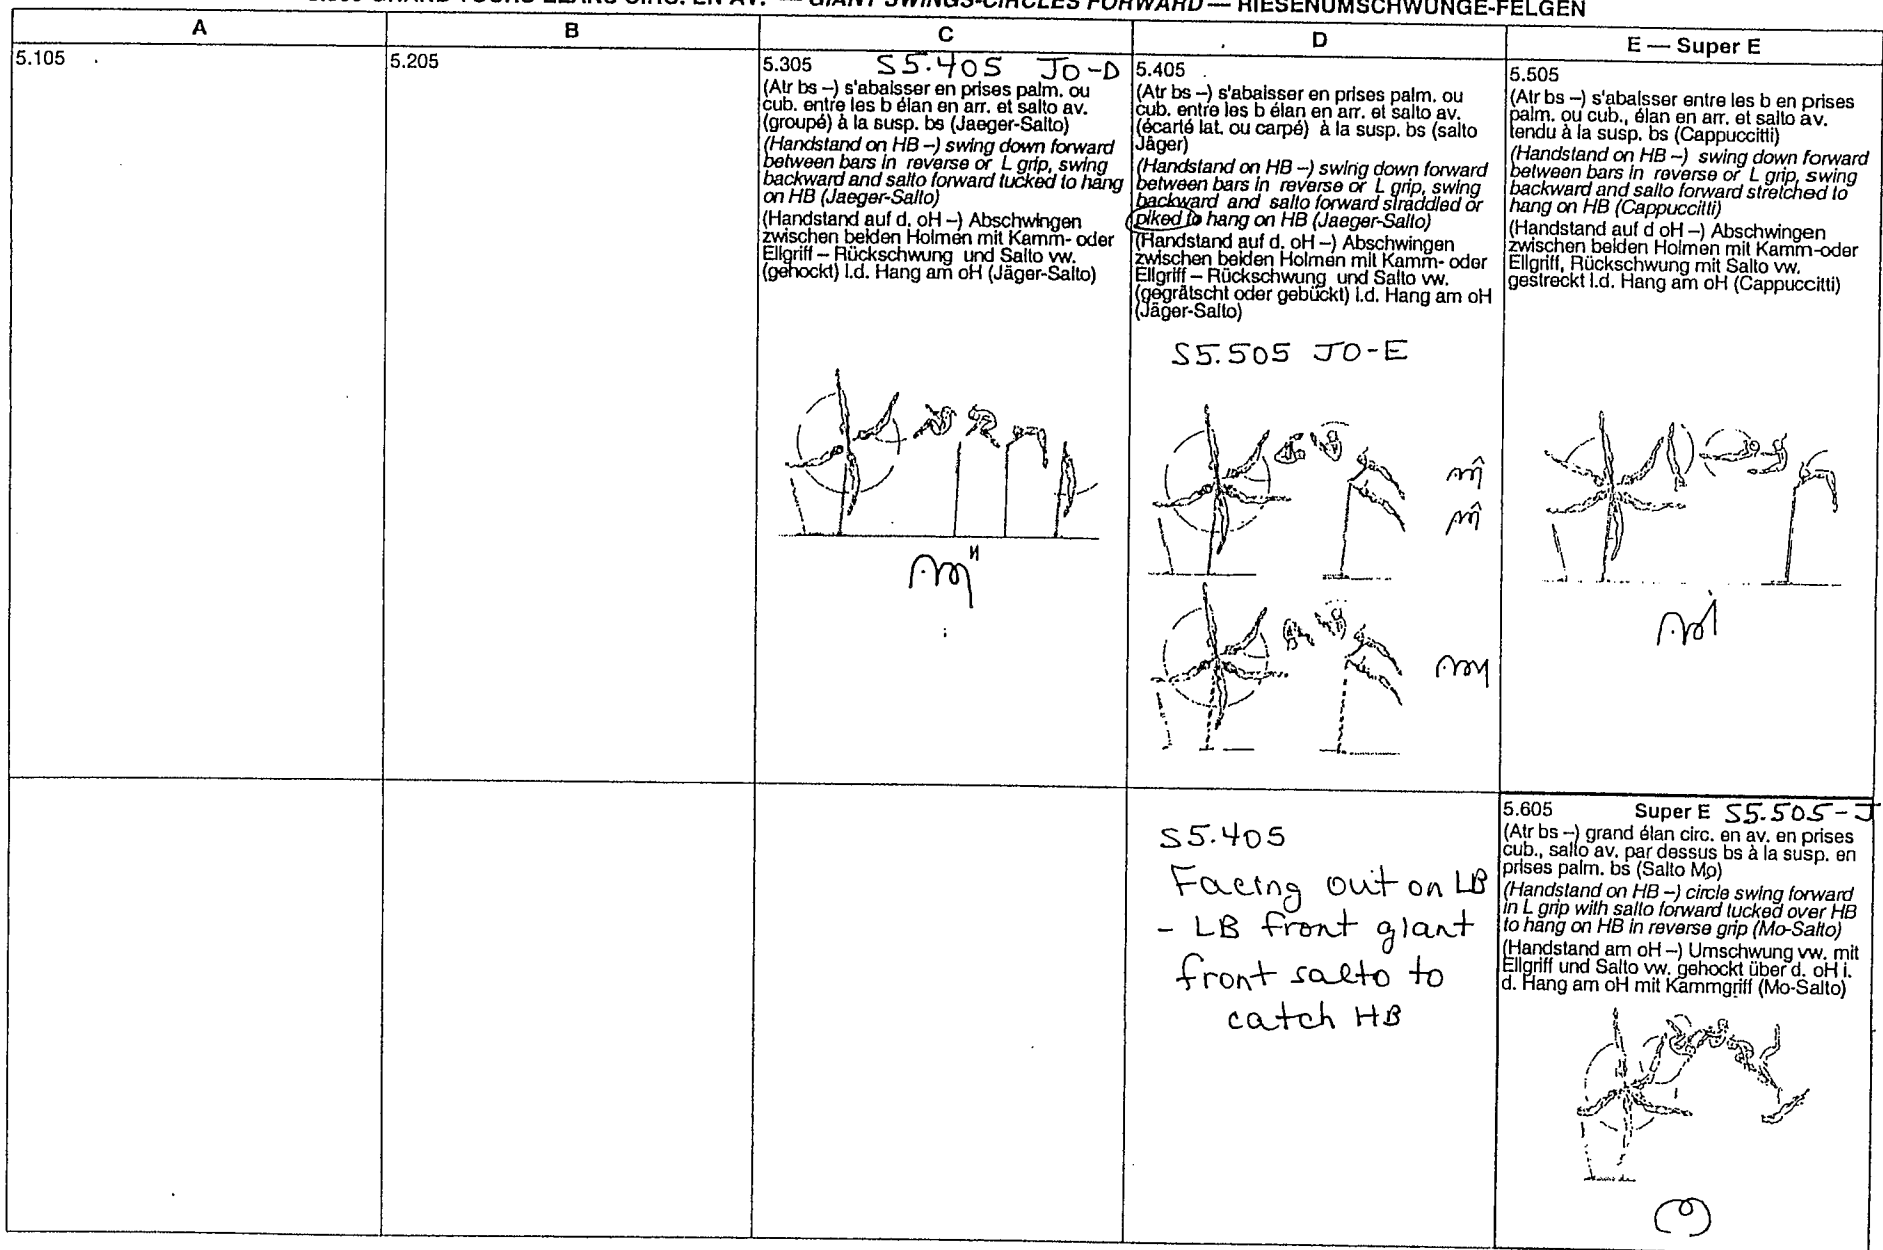 GRAND TOURS-ELANS CIRC. EN AV. — GIANT SWINGS-CIRCLES FORWARD — RIESENUMSCHWÜNGE-FELGEN
A
B
C
D
E — Super E
5.105
5.205
5.305 S5.405 JO-D
(Atr bs –) s'abaisser en prises palm. ou
cub. entre les b élan en arr. et salto av.
(groupé) à la susp. bs (Jaeger-Salto)
(Handstand on HB –) swing down forward
between bars in reverse or L grip, swing
backward and salto forward tucked to hang
on HB (Jaeger-Salto)
(Handstand auf d. oH –) Abschwingen
zwischen beiden Holmen mit Kamm- oder
Ellgriff – Rückschwung und Salto vw.
(gehockt) i.d. Hang am oH (Jäger-Salto)
5.405
(Atr bs –) s'abaisser en prises palm. ou
cub. entre les b élan en arr. et salto av.
(écarté lat. ou carpé) à la susp. bs (salto
Jäger)
(Handstand on HB –) swing down forward
between bars in reverse or L grip, swing
backward and salto forward straddled or
piked to hang on HB (Jaeger-Salto)
(Handstand auf d. oH –) Abschwingen
zwischen beiden Holmen mit Kamm- oder
Ellgriff – Rückschwung und Salto vw.
(gegrätscht oder gebückt) i.d. Hang am oH
(Jäger-Salto)
S5.505 JO-E
5.505
(Atr bs –) s'abaisser entre les b en prises
palm. ou cub., élan en arr. et salto av.
tendu à la susp. bs (Cappuccitti)
(Handstand on HB –) swing down forward
between bars in reverse or L grip, swing
backward and salto forward stretched to
hang on HB (Cappuccitti)
(Handstand auf d oH –) Abschwingen
zwischen beiden Holmen mit Kamm-oder
Ellgriff, Rückschwung mit Salto vw.
gestreckt i.d. Hang am oH (Cappuccitti)
S5.405
Facing out on LB
- LB front giant
front salto to
catch HB
5.605 Super E S5.505-J
(Atr bs –) grand élan circ. en av. en prises
cub., salto av. par dessus bs à la susp. en
prises palm. bs (Salto Mo)
(Handstand on HB –) circle swing forward
in L grip with salto forward tucked over HB
to hang on HB in reverse grip (Mo-Salto)
(Handstand am oH –) Umschwung vw. mit
Ellgriff und Salto vw. gehockt über d. oH i.
d. Hang am oH mit Kammgriff (Mo-Salto)